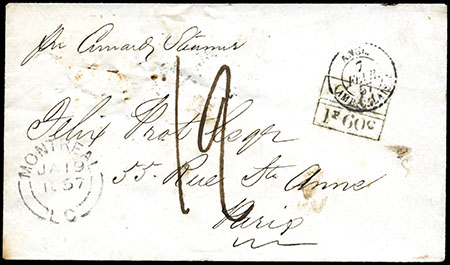 per Cunard Steamer
ANGL.
7
FEVR.
57
AMB. CALAIS
1F60C
19
Felix Prot Esqr
55 Rue Ste Anne
Paris
MONTREAL
JA 19
1857
L.C